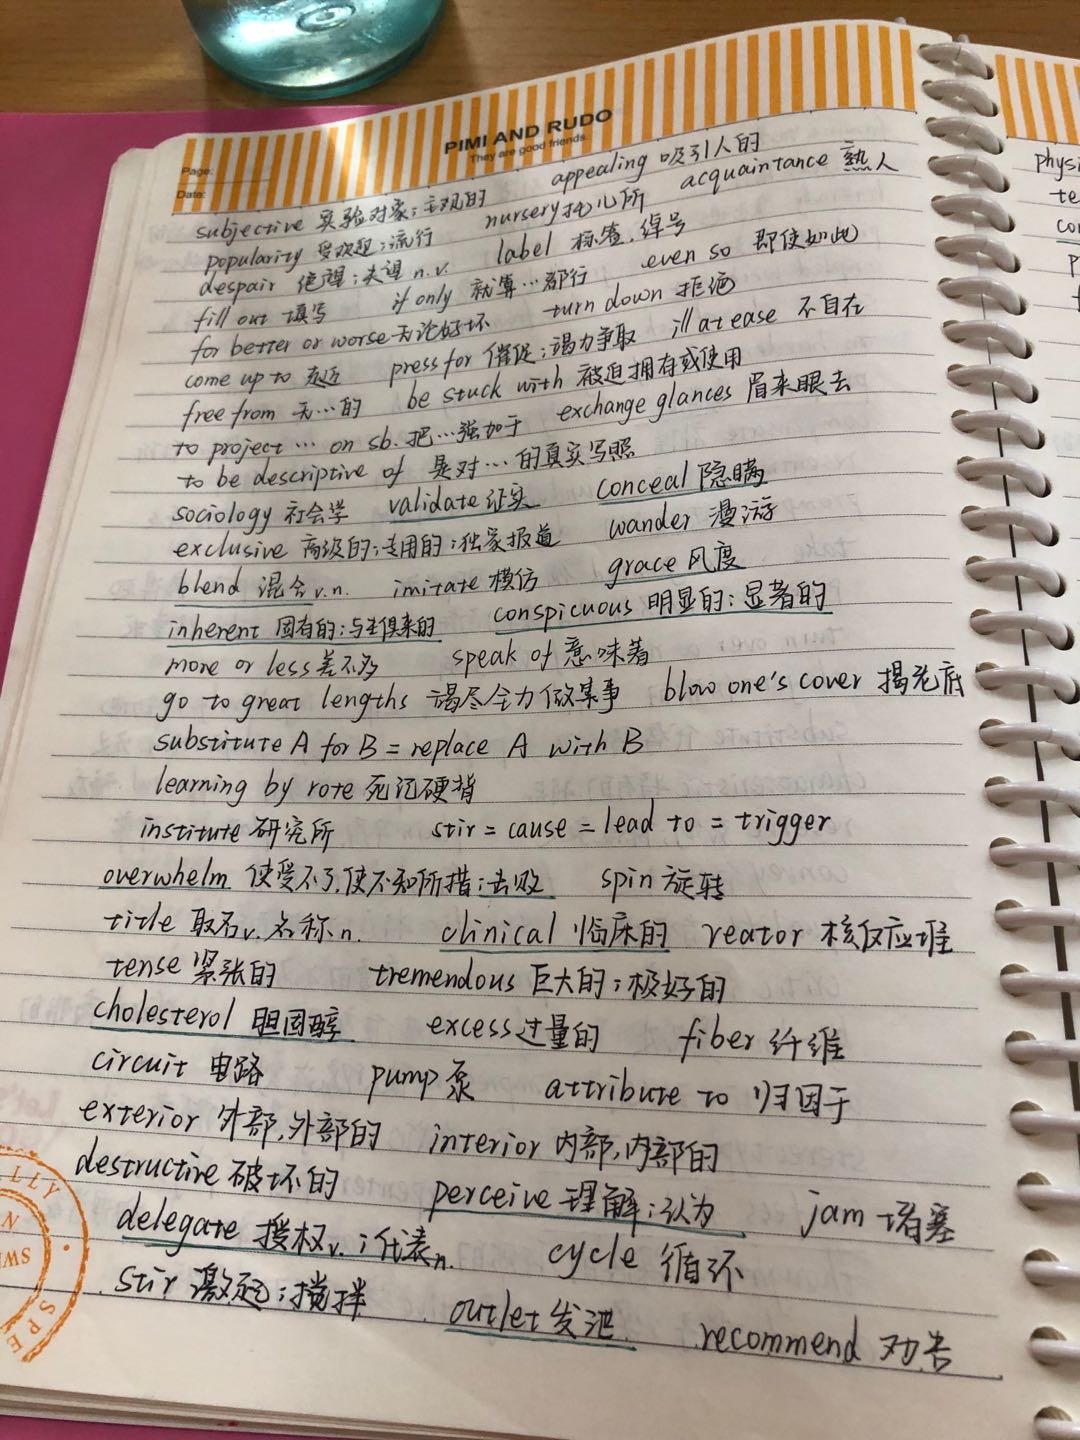 PIMI AND RUDO
They are good friends.
Page:
Date:
appealing 吸引人的
subjective 实验对象;主观的 nursery托儿所 acquaintance 熟人
popularity 受欢迎;流行 label 标签,绰号
despair 绝望;失望 n.v. if only 就算…都行 even so 即使如此
fill out 填写 turn down 拒绝
for better or worse 无论好坏 ill at ease 不自在
come up to 走近 press for 催促;竭力争取
free from 无…的 be stuck with 被迫拥有或使用
to project … on sb. 把…强加于 exchange glances 眉来眼去
to be descriptive of 是对…的真实写照
sociology 社会学 validate 证实 conceal 隐瞒
exclusive 高级的;专用的;独家报道 wander 漫游
blend 混合v.n. imitate 模仿 grace 风度
inherent 固有的;与生俱来的 conspicuous 明显的;显著的
more or less 差不多 speak of 意味着
go to great lengths 竭尽全力做某事 blow one's cover 揭老底
substitute A for B = replace A with B
learning by rote 死记硬背
institute 研究所 stir = cause = lead to = trigger
overwhelm 使受不了,使不知所措;击败 spin 旋转
title 取名v.名称n. clinical 临床的 reator 核反应堆
tense 紧张的 tremendous 巨大的;极好的
cholesterol 胆固醇 excess过量的 fiber 纤维
circuit 电路 pump 泵 attribute to 归因于
exterior 外部,外部的 interior 内部,内部的
destructive 破坏的 perceive 理解;认为 jam 堵塞
delegate 授权v.;代表n. cycle 循环
stir 激起;搅拌 outlet 发泄 recommend 劝告
physi
te
co
p